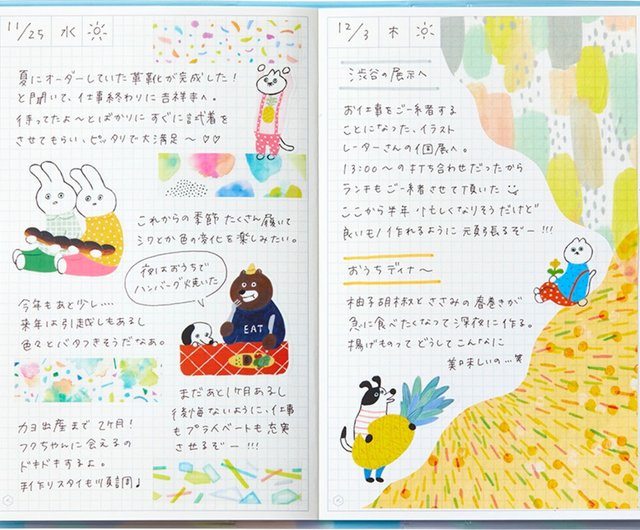 11/25 水
夏にオーダーしていた革靴が完成した!
と聞いて、仕事終わりに吉祥寺へ。
待ってたよ〜とばかりに すぐに試着を
させてもらい、ピッタリで大満足〜♡♡
これからの季節 たくさん履いて
シワとか色の変化を楽しみたい。
夜はおうちで
ハンバーグ焼いた
EAT
今年もあと少し….
来年は引越しもあるし
色々とバタつきそうだなあ。
まだあと1ヶ月あるし
後悔ないように、仕事
もプライベートも充実
させるぞー!!!
カヨ出産まで 2ヶ月!
フクちゃんに会えるの
ドキドキするよ。
手作りスタイも順調♪
12/3 木
渋谷の展示へ
お仕事をご一緒する
ことになった、イラスト
レーターさんの個展へ。
13:00〜の打ち合わせだったから
ランチもご一緒させて頂いた
ここから半年 忙しくなりそうだけど
良いもの作れるように 頑張るぞー!!!
おうちディナ〜
柚子胡椒とささみの春巻きが
急に食べたくなって深夜に作る。
揚げものって どうしてこんなに
美味しいの…笑